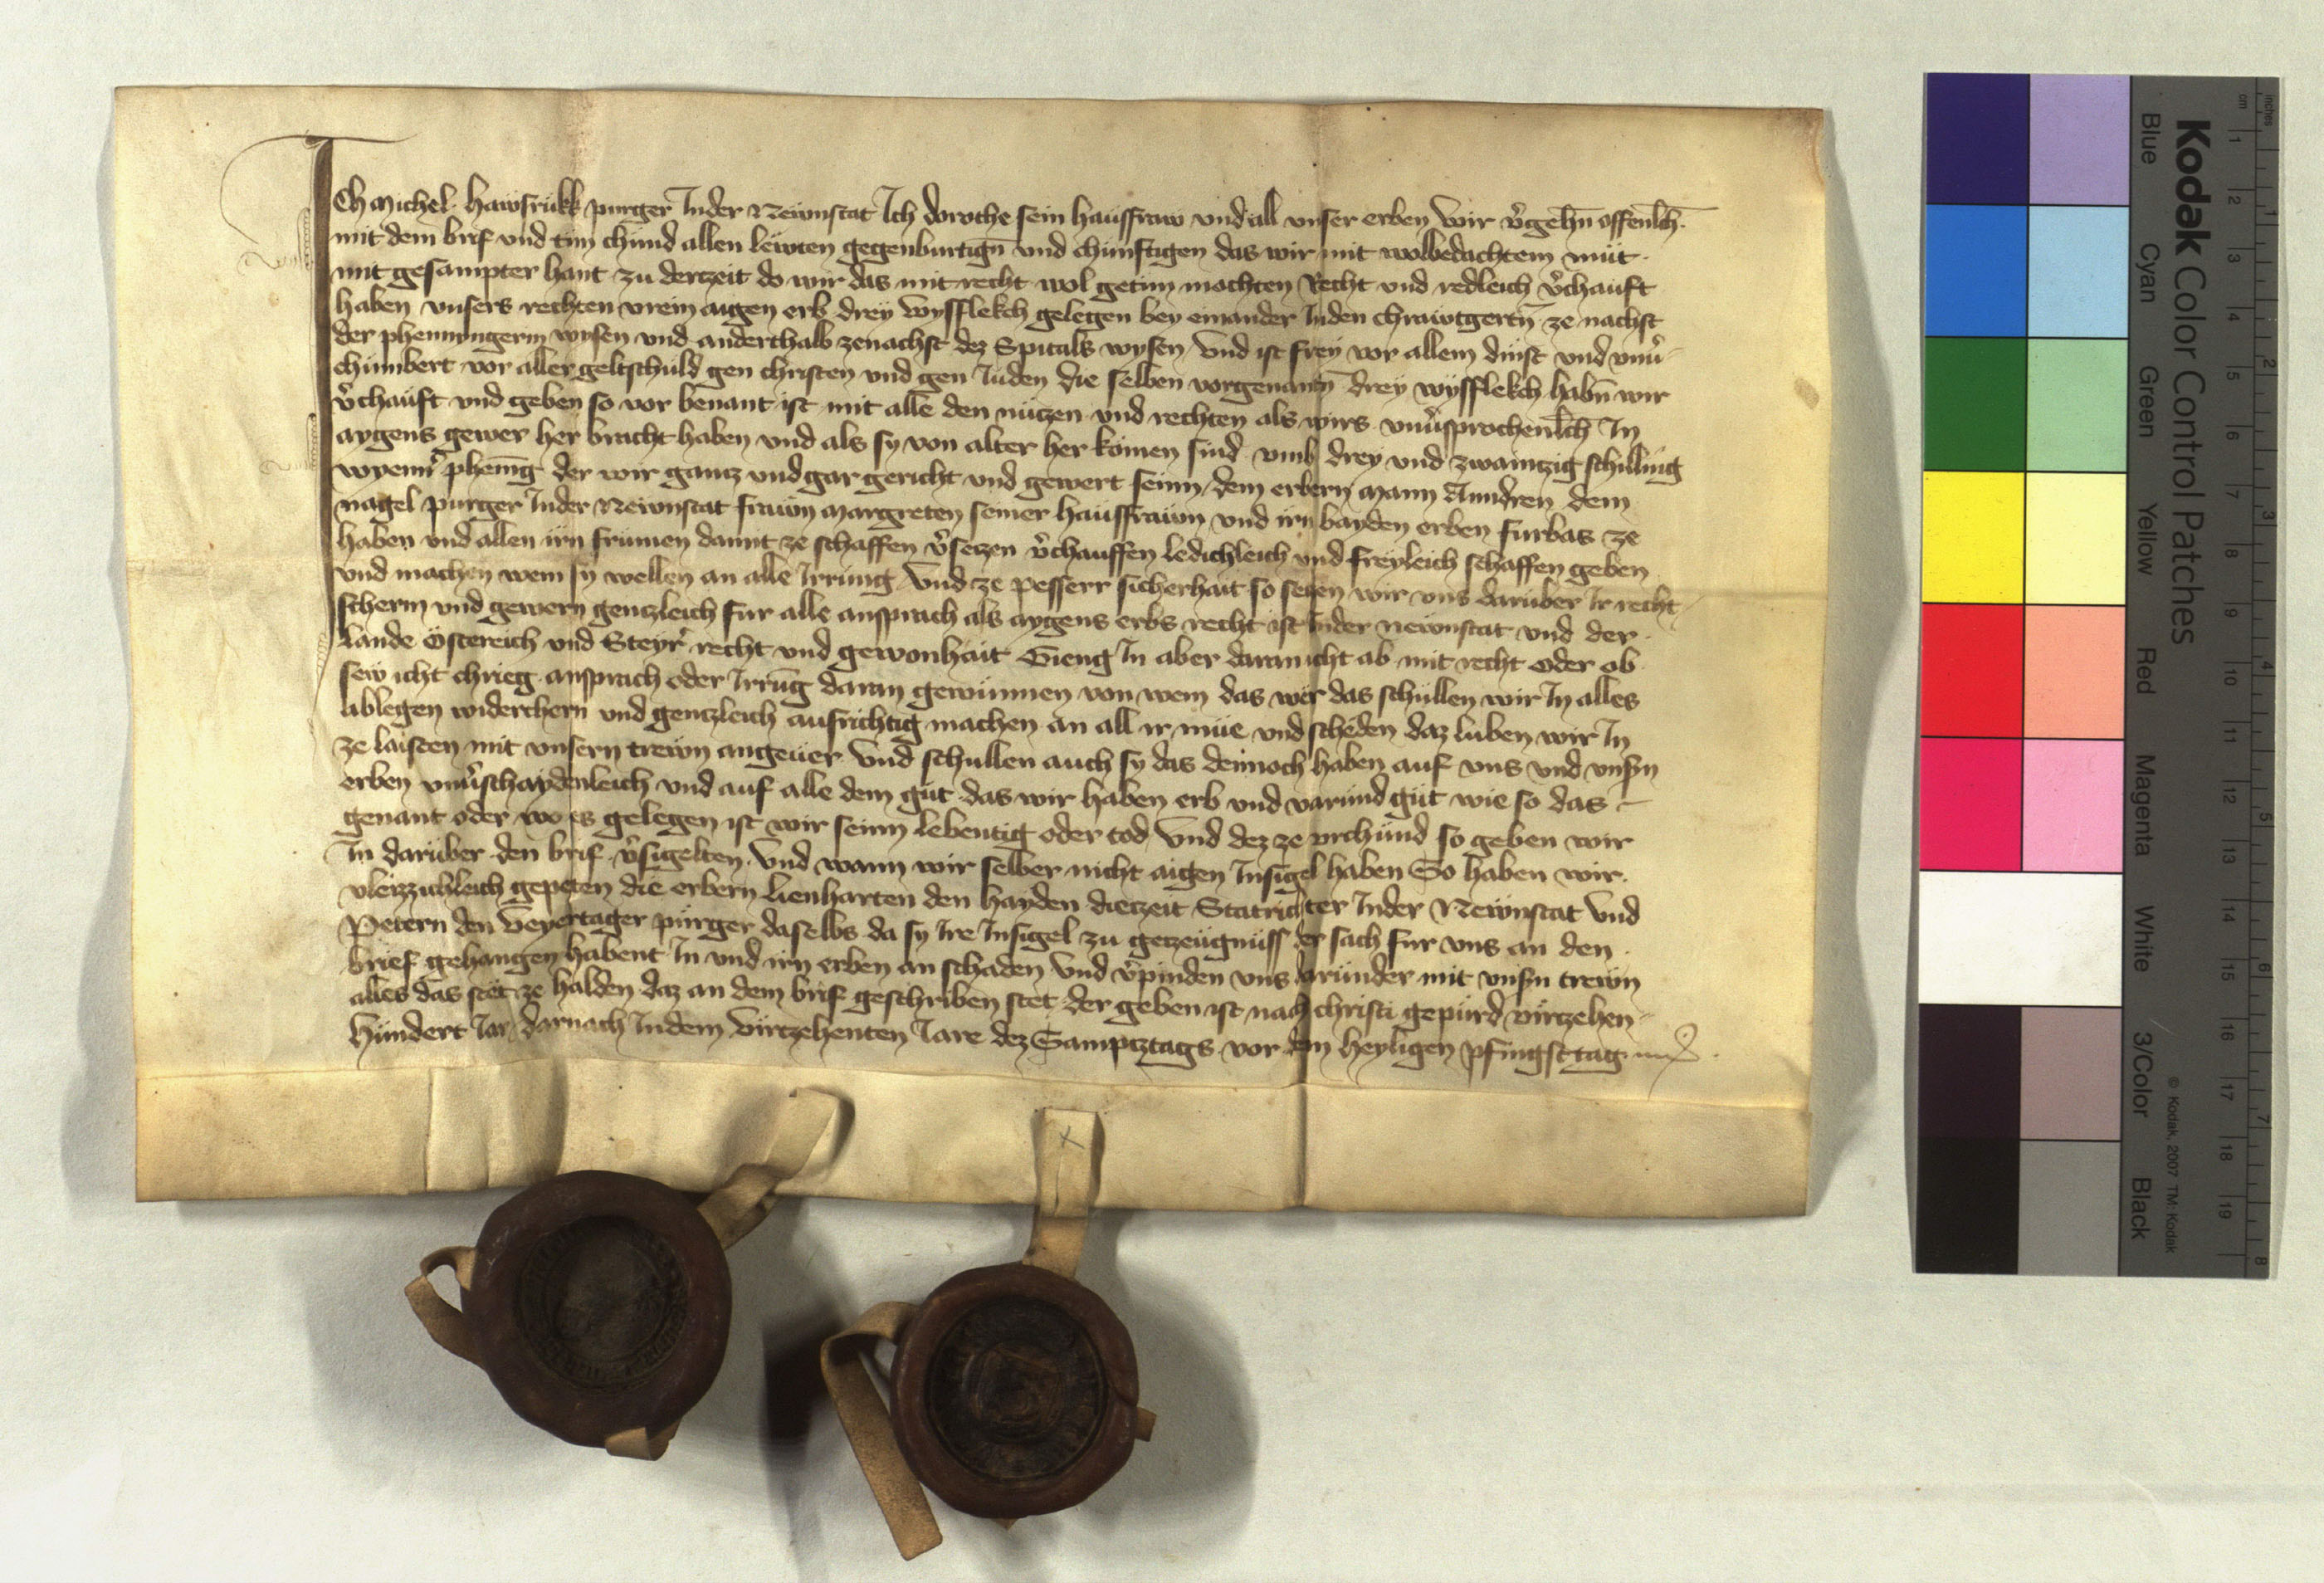 Ich Michel hawsrukk purger Inder Newnstat Ich dorothe sein haussfraw und all unser erben Wir v̉gehn̄ offenlch̄
mit dem brif und tun chund allen lewten gegenburtign̄ und chunftigen das wir mit wolbedachtem mut
mit gesampter hant zu derczeit do wir das mit recht wol getun mochten Recht und redleich v̉chauft
haben unsers rechten vrein aigen erb drey wysflekch gelegen bey einander Inden chrawtgertn̄ ze nachst
der phenningerin wysen und anderthalb zenachst dez Spitals wysen Und ist frey vor allem dinst und unv̉
chumbert vor aller geltschuld gen christen und gen Juden die selben vorgenantn̄ drey wysflekch habn̄ wir
v̉chauft und geben so vor benant ist mit alle den nuczen und rechten als wirs unv̉sprochenlch̄ In
aygens gewer her bracht haben und als sy von alter her komen sind umb drey und zwainczig schilling
wyenn̉ pheniḡ der wir gancz und gar gericht und gewert seinn dem erbern mann Anndren dem
nagel purger Inder Newnstat frawn margreten seiner haussfrawn und irn bayden erben furbas ze
haben und allen irn frumen damit ze schaffen v̉seczen v̉chauffen ledichleich und freyleich schaffen geben
und machen wem sy wellen an alle Irrung Und ze pesserr sicherhait so seczen wir uns daruber Ir recht
scherm und gewern genczleich fur alle ansprach als aygens erbs recht ist Inder newnstat und der
Lande Ostereich und Steyr̉ recht und gewonhait Gieng In aber daran icht ab mit recht oder ob
sew icht chrieg ansprach oder Irrūg daran gewunnen von wem das wer das schullen wir In alles
ablegen widerchern und genczleich aufrichtig machen an all ir mue und scheden daz luben wir In
ze laisten mit unsern trewn angeuer Und schullen auch sy das dennoch haben auf uns und unsn̉
erben unv̉schaydenleich und auf alle dem gut das wir haben erb und varund gut wie so das
genant oder wo es gelegen ist wir seinn lebentig oder tod Und dez ze urchund so geben wir
In daruber den brif v̉sigelten Und wann wir selber nicht aigen Insigel haben So haben wir
vleizzichleich gepeten die erbern Lienharten den hayden dieczeit Statrichter Inder Newnstat Und
Petern den Veyertager purger daselbs da sy Ire Insigel zu geczeugnuss der sach fur uns an den
brief gehangen habent In und irn erben an schaden Und v̉pinden uns darunder mit unsn̉ trewn
alles das stet ze halden daz an dem brif geschriben stet der geben ist nach christi gepurd virczehen
Hundert Jar darnach Indem virczehenten Jare dez Samptztags vor dem heyligen pfingsttag
X
Kodak Color Control Patches
Blue Cyan Green Yellow Red Magenta White 3/Color Black
© Kodak, 2007 TM: Kodak
inches 1 2 3 4 5 6 7 8
cm 1 2 3 4 5 6 7 8 9 10 11 12 13 14 15 16 17 18 19